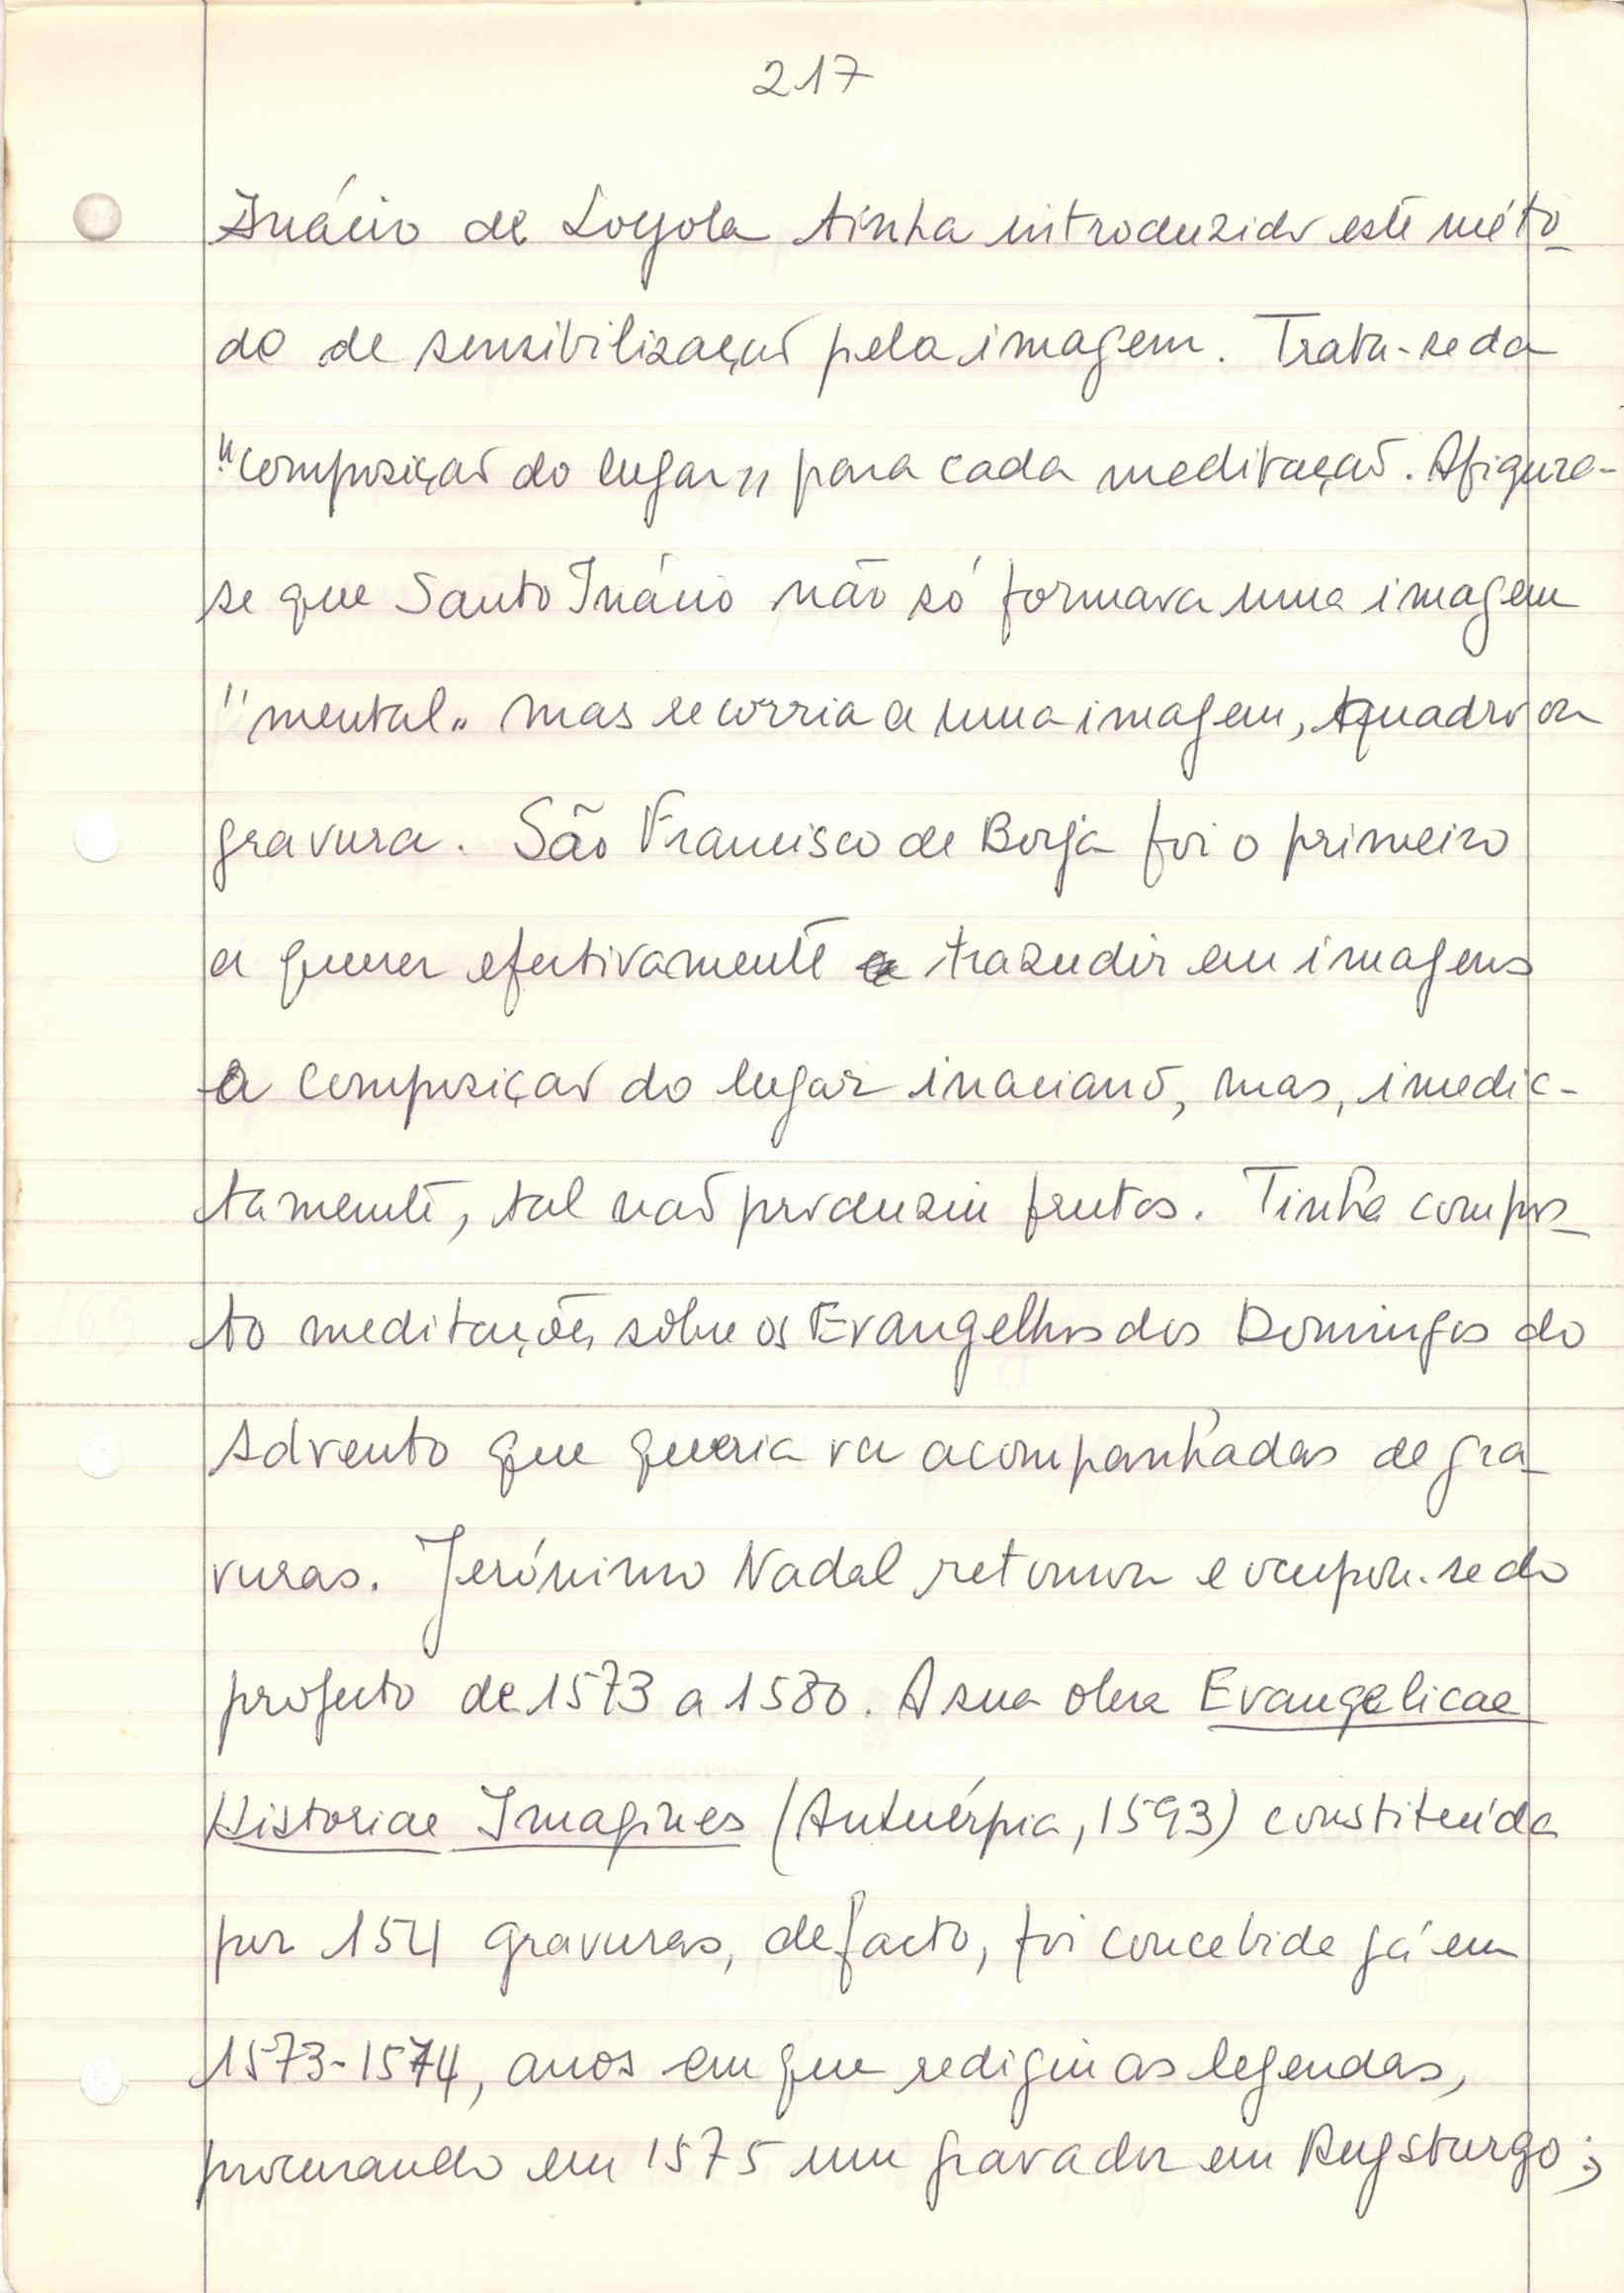 217
Inácio de Loyola tinha introduzido este méto
do de sensibilização pela imagem. Trata-se da
"composição do lugar" para cada meditação. Afigura-
se que Santo Inácio não só formava uma imagem
"mental" mas recorria a uma imagem, quadro ou
gravura. São Francisco de Borja foi o primeiro
a querer efectivamente trazudir em imagens
a composição do lugar inaciano, mas, imedia-
tamente, tal não produziu frutos. Tinha compos
to meditações sôbre os Evangelhos dos Domingos do
Advento que queria ver acompanhadas de gra
vuras. Jerónimo Nadal retomou e ocupou-se do
projecto de 1573 a 1580. A sua obra Evangelicae
Historiae Imagines (Antuérpia, 1593) constituída
por 154 gravuras, de facto, foi concebida já em
1573-1574, anos em que redigiu as legendas,
procurando em 1575 um gravador em Augsburgo;